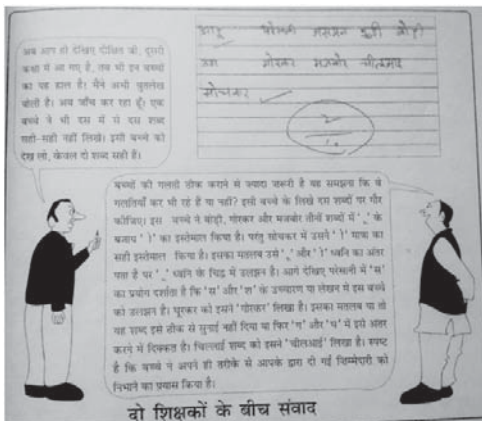 अब आप ही देखिए दीक्षित जी, दूसरी
कक्षा में आ गए हैं, तब भी इन बच्चों
का यह हाल है। मैंने अभी श्रुतलेख
बोली है। अब जाँच कर रहा हूँ। एक
बच्चे ने भी दस में से दस शब्द
सही-सही नहीं लिखे। इसी बच्चे को
देख लो, केवल दो शब्द सही हैं।
आड़ू परेसानी
उम गोरकर मजबोर चीलआई
सोचकर
2
10
बच्चों की गलती ठीक कराने से ज्यादा जरूरी है यह समझना कि वे
गलतियाँ कर भी रहे हैं या नहीं? इसी बच्चे के लिखे दस शब्दों पर गौर
कीजिए। इस बच्चे ने थोड़ी, गोरकर और मजबोर तीनों शब्दों में 'ू' के
बजाय 'ो' का इस्तेमाल किया है। परंतु सोचकर में उसने 'ो' मात्रा का
सही इस्तेमाल किया है। इसका मतलब उसे 'ू' और 'ो' ध्वनि का अंतर
पता है पर 'ू' ध्वनि के चिह्न में उलझन है। आगे देखिए परेसानी में 'स'
का प्रयोग दर्शाता है कि 'स' और 'श' के उच्चारण या लेखन में इस बच्चे
को उलझन है। घूरकर को इसने 'गोरकर' लिखा है। इसका मतलब या तो
यह शब्द इसे ठीक से सुनाई नहीं दिया या फिर 'ग' और 'घ' में इसे अंतर
करने में दिक्कत है। चिल्लाई शब्द को इसने 'चीलआई' लिखा है। स्पष्ट
है कि बच्चे ने अपने ही तरीके से आपके द्वारा दी गई जिम्मेदारी को
निभाने का प्रयास किया है।
दो शिक्षकों के बीच संवाद